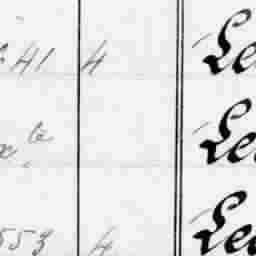 41 4 Le
le Le
553 4 Le